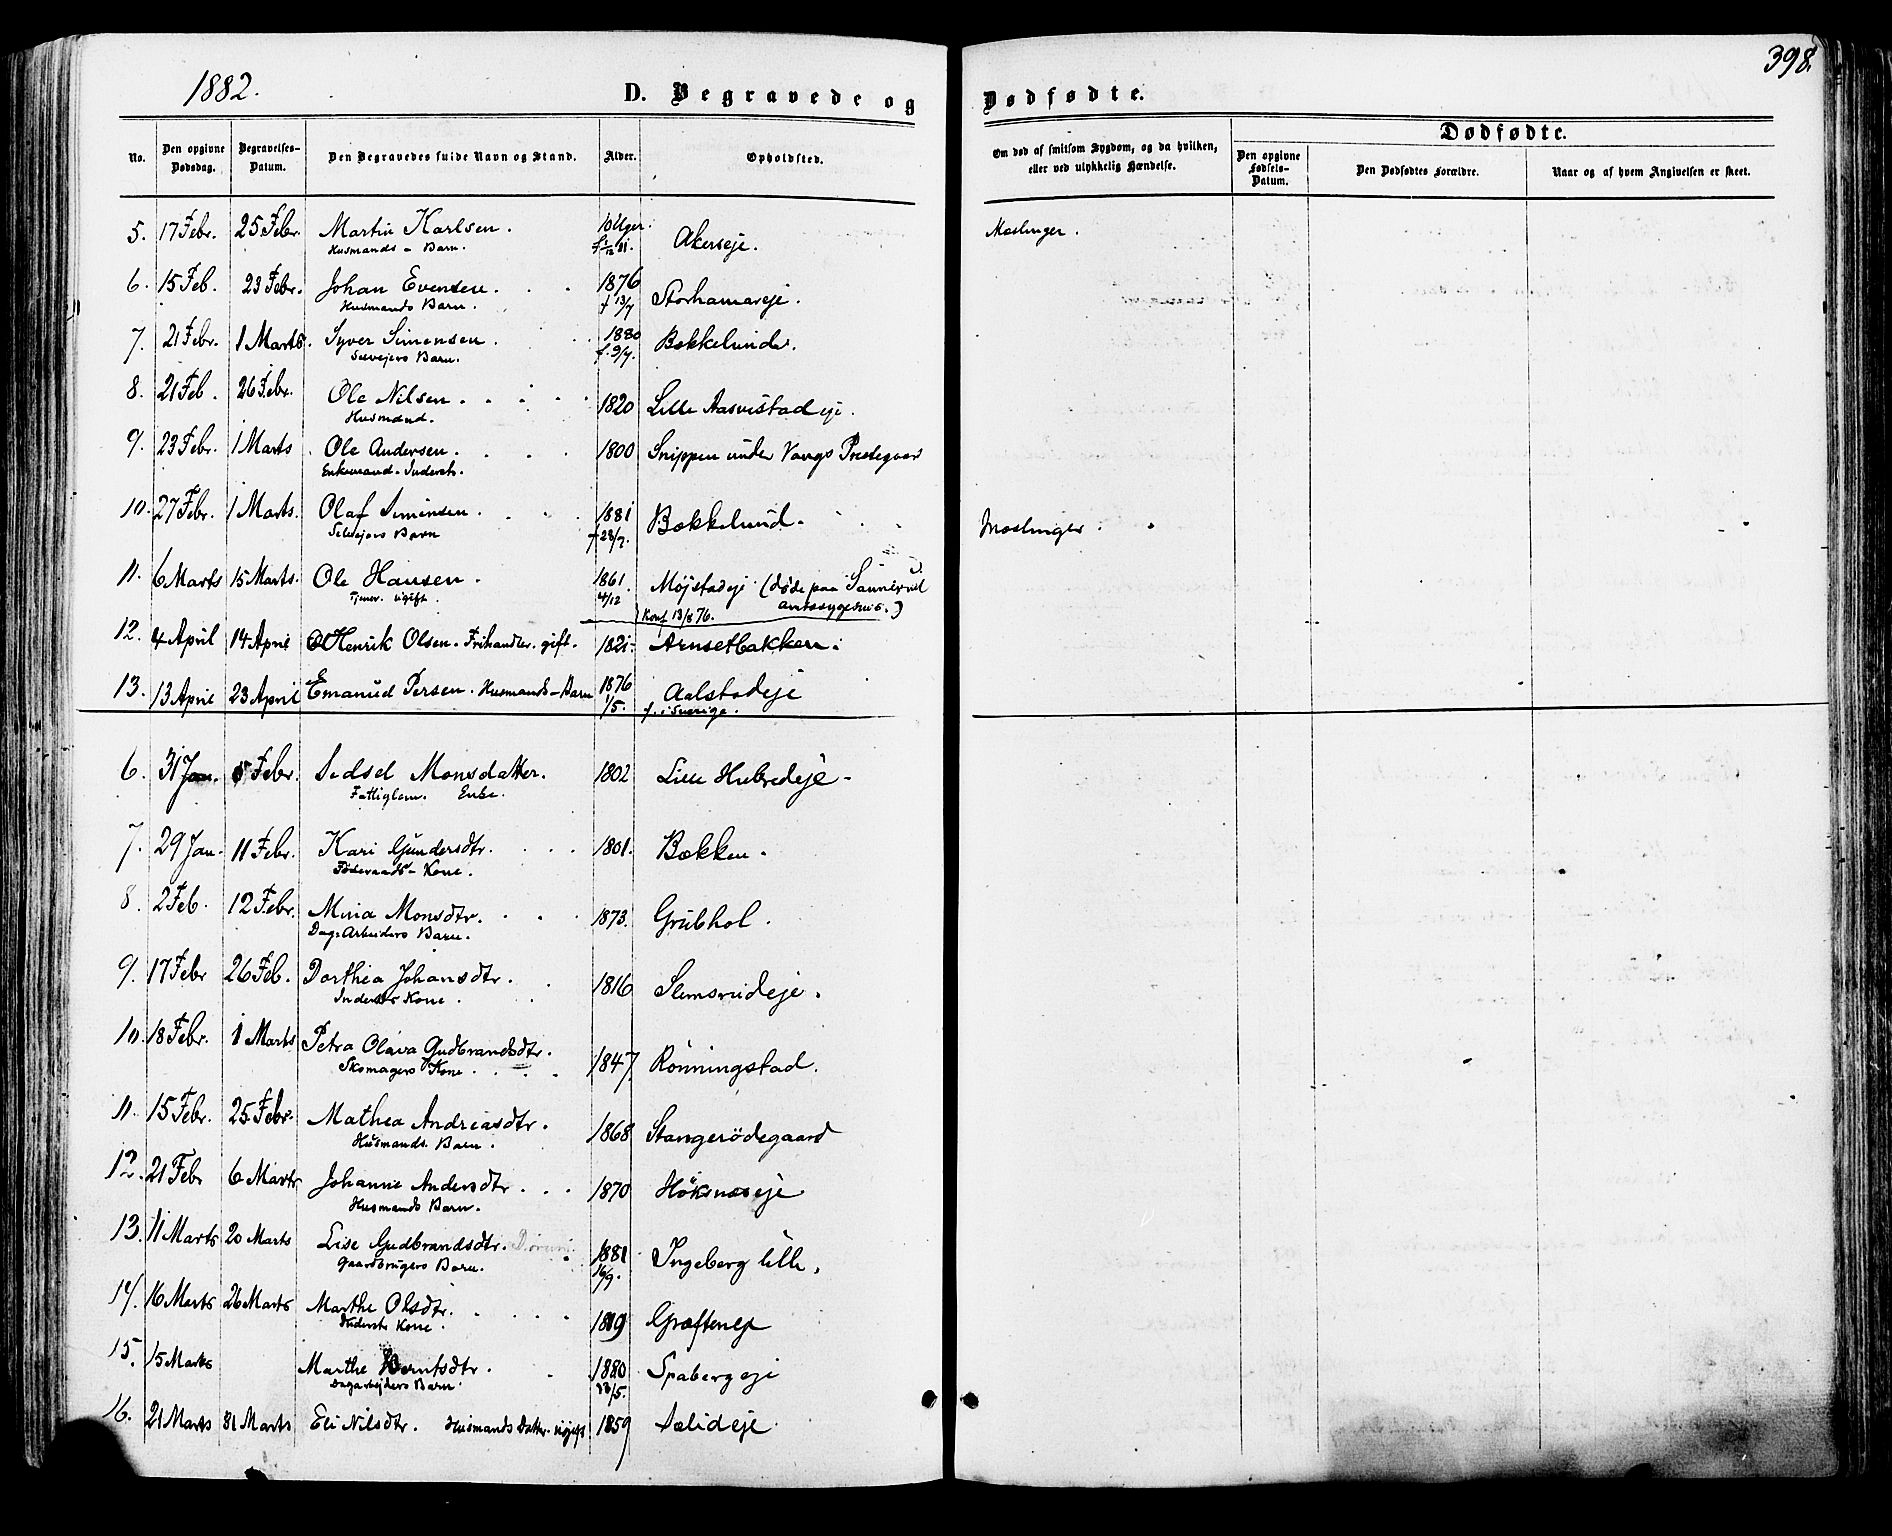 1882.
398.
D. Begravede og Dødfødte.
No. Den opgivne Dødsdag. Begravelses-Datum. Den Begravedes fulde Navn og Stand. Alder. Opholdsted.
Om død af smitsom Sygdom, og da hvilken, eller ved ulykkelig Hændelse.
Dødfødte.
Den opgivne Fødsels-Datum. Den Dødfødtes Forældre. Naar og af hvem Angivelsen er skeet.
5. 17 Febr. 25 Febr. Martin Karlsen. 10 Uger. Akerseje. Mæslinger.
Husmands-Barn. f. 1/12 81.
6. 15 Feb. 23 Febr. Johan Evensen. 1876 Storhamareje.
Husmands Barn. f 13/7
7. 21 Febr. 1 Marts. Syver Simensen. 1880 Bækkelunde.
Selvejers Barn. f. 9/7.
8. 21 Feb. 26 Febr. Ole Nilsen. 1820 Lille Aasvestad eje.
Husmand.
9. 23 Febr. 1 Marts Ole Andersen. 1800 Snippen under Vangs Prestegaard
Enkemand. Inderst.
10. 27 Febr. 1 Marts. Olaf Simensen. 1881 Bækkelund. Mæslinger.
Selvejers Barn f 28/7.
11. 6 Marts 15 Marts. Ole Hansen. 1861. Møjstadeje (døde paa Sannerud
Tjener. ugift. 4/12 amtssygehus.)
Konf 13/8 76.
12. 4 April 14 April Henrik Olsen. Frihandler. gift. 1821. Arnsetbakken.
13. 13 April 23 April Emanuel Persen. Husmands-Barn 1876 Aalstadeje
1/5. f. i Sverige.
6. 31 Jan. 5 Febr. Sidsel Monsdatter. 1802 Lille Hubredeje
Fattiglem. Enke.
7. 29 Jan. 11 Febr. Kari Gundersdtr. 1801. Bækken.
Føderaads-Kone.
8. 2 Feb. 12 Febr. Mina Monsdtr. 1873. Grubhol.
Dag-Arbeiders Barn.
9. 17 Febr 26 Feb. Dorthea Johansdtr. 1816 Slemsrudeje.
Inderst Kone.
10. 18 Febr. 1 Marts Petra Olava Gudbrandsdtr. 1847. Rönningstad.
Skomagers Kone.
11. 15 Febr. 25 Febr. Mathea Andreasdtr. 1868 Stangerödegaard
Husmands. Barn.
12. 21 Febr 6 Marts Johanne Andersdtr. 1870 Höksnæseje
Husmands Barn.
13. 11 Marts 20 Marts Lise Gudbrandsdtr. 1881 Ingeberg lille.
Gaardbrugers Barn. 16/9.
14. 16 Marts 26 Marts Marthe Olsdtr. 1819 Græfteneje
Inderst Kone.
15. 15 Marts Marthe Berntsdtr. 1880 Spabergeje
Dagarbejders Barn. 23/5.
16. 21 Marts 31 Marts Eli Nilsdtr. Husmands Datter. ugift 1859 Sælideje